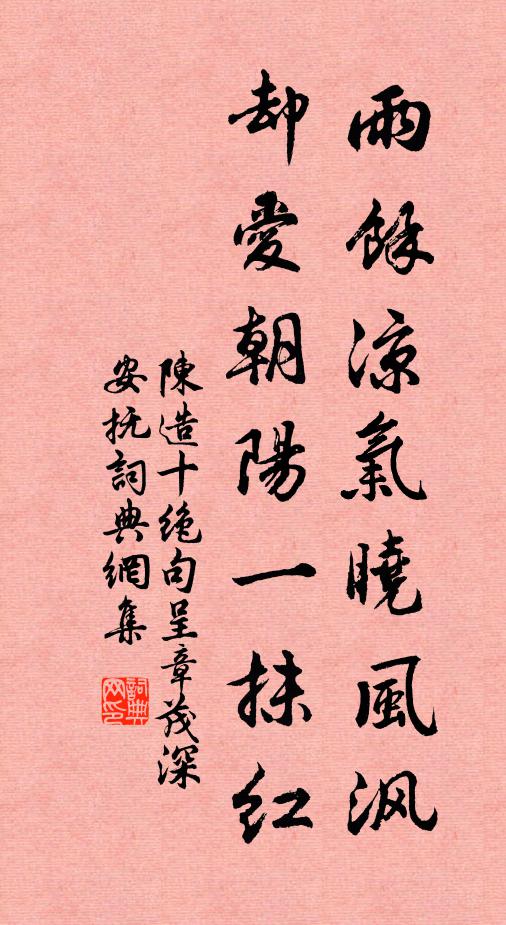 雨餘涼氣曉風渢
却愛朝陽一抹紅
陳造十絶句呈章茂深
安抚詞典網集
詞典网印